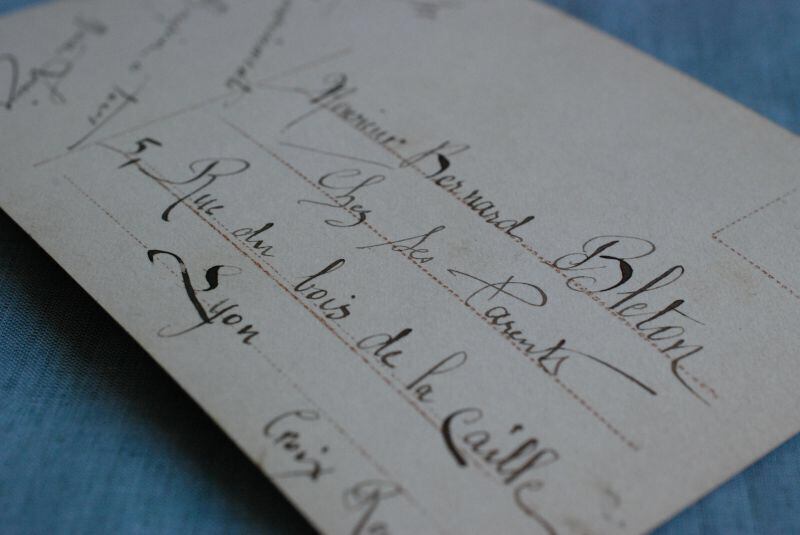 Monsieur Bernard Bleton
Chez Ses Parents
5, Rue du bois de la Caille
Lyon
Croix